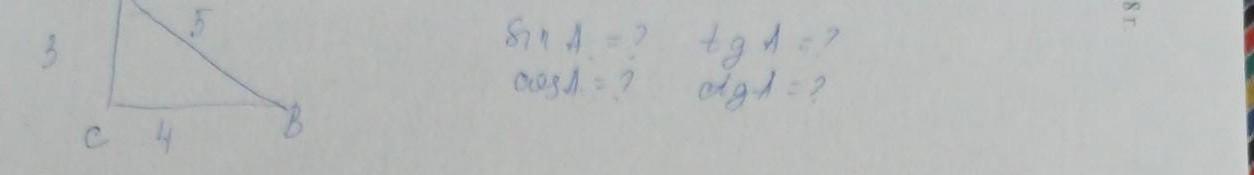 5
3
sin A = ? tg A = ?
cos A = ? ctg A = ?
C 4 B
8 г.